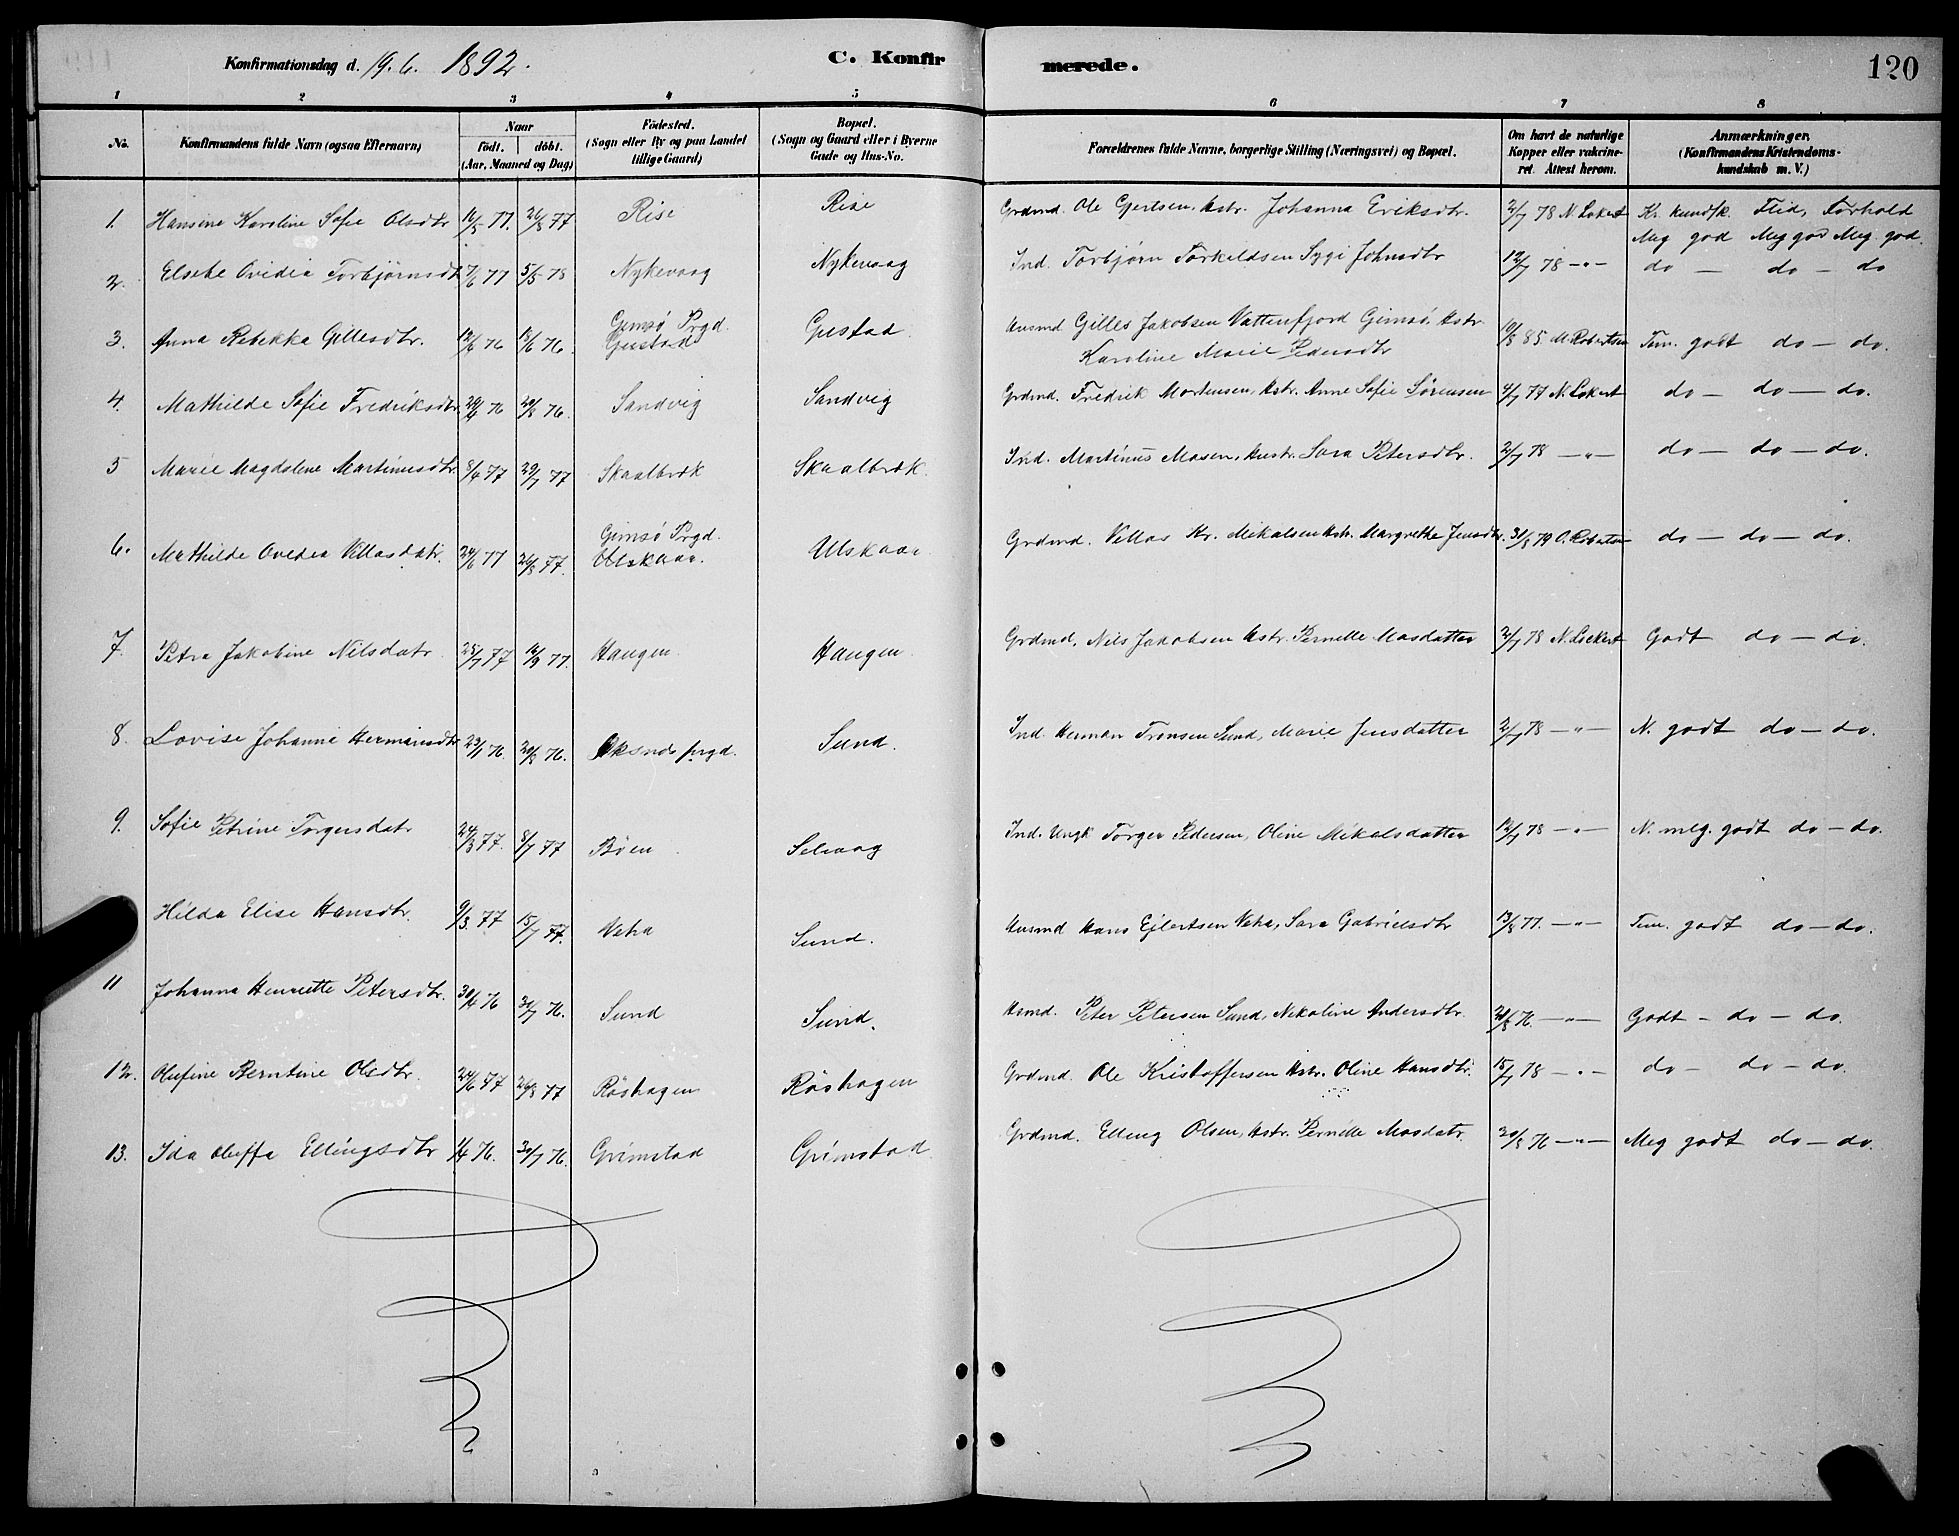 Konfirmationsdag d. 19.6. 1892. C. Konfir merede. 120
1 2 3 4 5 6 7 8
No. Konfirmandens fulde Navn (ogsaa Efternavn) Naar født. døbt. (Aar, Maaned og Dag) Fødested. (Sogn eller By og paa Landet tillige Gaard) Bopæl. (Sogn og Gaard eller i Byerne Gade og Hus-No. Forældrenes fulde Navne, borgerlige Stilling (Næringsvei) og Bopæl. Om havt de naturlige Kopper eller vakcineret. Attest herom. Anmærkninger. (Konfirmandens Kristendomskundskab m. V.)
1. Hansine Karoline Sofie Olsdtr 16/5 77. 26/8 77 Rise Rise Grdmd. Ole Gjertsen, Hstr. Johanna Eriksdtr. 2/7 78 N. Lokert Kr. kundsk. Flid, Forhold
Meg god Meg god Meg. god.
2. Elseke Ovidia Torbjørnsdt 7/6 77 5/5 78 Nykevaag Nykevaag Ind. Torbjørn Torkildsen Sygi Johnsdtr 12/7 78 —"— do — do — do
3. Anna Rebekka Gillesdtr. 12/4 76 15/6 76. Gimsø Prgd. Gustad Gustad Husmd Gilles Jakobsen Vattenfjord Gimsø, Hstr.
Karoline Marie Pedersdtr 10/8 85 M. Robertsen Tem. godt do — do.
4. Mathilde Sofie Fredriksdtr 24/4 76 20/8 76. Sandvig Sandvig Grdmd. Fredrik Mortensen, Hstr. Anne Sofie Sørensen 4/7 77 N. Lokert do — do — do.
5 Marie Magdalene Martinusdtr 8/4 77 29/7 77 Skaalbrek Skaalbrek Ind. Martinus Mosen, Hustr. Sara Petersdtr. 2/7 78 —"— do — do — do.
6. Mathilde Ovedia Villasdatr. 24/6 77 26/8 77. Gimsø Prgd. Ulskaar. Ulskaar Grdmd. Villas Kr. Mikalsen Hstr. Margrethe Jensdtr. 31/8 79 O. Robertsen do — do — do.
7. Petra Jakobine Nilsdatr. 25/7 77 16/9 77. Haugen. Haugen. Grdmd, Nils Jakobsen Hstr. Pernelle Mosdatter 2/7 78 N. Lockert Godt do — do.
8. Lovise Johanne Hermansdtr 23/1 76. 20/8 76. Øksnes prgd. Sund. Ind. Herman Tronsen Sund, Marie Jensdatter 2/7 78 —"— N. godt do — do.
9. Sofie Petrine Torgersdatr 24/3 77. 8/7 77 Bøen Selvaag Ind. Ungk Torger Pedersen, Oline Mikalsdatter 12/7 78 —"— N. meg. godt do — do.
Hilda Elise Hansdtr. 9/3 77 15/7 77. Veha Sund. Husmd Hans Ejlertsen Veha, Sara Gabrielsdtr 13/8 77. —"— Tem. godt do — do.
11 Johanna Henriette Petersdtr. 30/4 76 30/7 76. Sund Sund. Husmd. Peter Petersen Sund, Nikoline Andersdtr. 21/8 76. —"— Godt — do — do.
12. Olufine Berntine Olsdtr. 24/6 77 26/8 77 Røshagen Røshagen Grdmd. Ole Kristoffersen Hstr. Oline Hansdtr. 15/7 78 —"— do — do — do.
13. Ida Oluffa Ellingsdtr 1/4 76. 30/7 76. Grimstad Grimstad. Grdmd. Elling Olsen, Hstr. Pernille Mosdatr. 20/8 76 —"— Meg godt do — do.